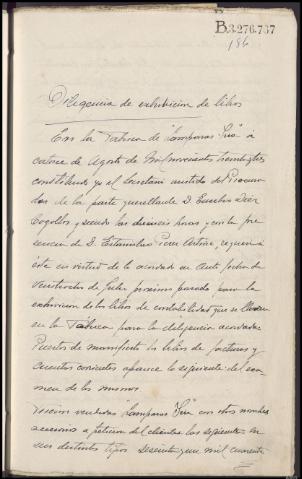 B3.276.737
186
Diligencia de exhibicion de libros
En la Fabrica de "Lamparas Iria" a
catorce de Agosto de Mil novecientos treinta y tres
constituido yo el Secretario asistido del Procura
dor de la parte querellante D. Eusebio Diaz
Cogollos y siendo las diecisiete horas y con la pre
sencia de D. Estanislao requeri a
este en virtud de lo acordado en auto fecha de
veintiseis de Julio proximo pasado para la
exhibicion de los libros de contabilidad que se llevan
en la Fabrica para la diligencia acordada
Puestos de manifiesto los libros de facturas y
cuentas corrientes aparece lo siguiente del exa
men de los mismos
vendidas "Lamparas Iria" con otros nombres
accesorios a peticion del cliente las siguientes en
sus distintos tipos sesenta y un mil cuarenta